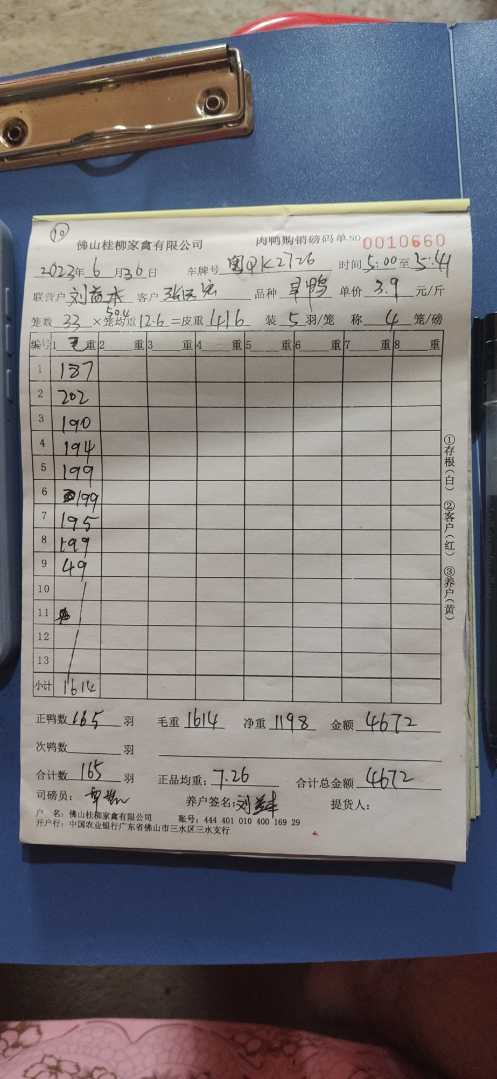 10
佛山桂柳家禽有限公司 肉鸭购销磅码单 NO 0010660
2023年 6 月 30 日 车牌号 粤QK2726 时间 5:00 至 5:41
联营户 刘益 客户 品种 旱鸭 单价 3.9 元/斤
50.4
笼数 33 ×笼均重 12.6 =皮重 416 装 5 羽/笼 称 4 笼/磅
编号 1 毛 重 2 重 3 重 4 重 5 重 6 重 7 重 8 重
1 187
2 202
3 190
4 194
5 199
6 199
7 195
8 199
9 49
10
11
12
13
小计 1614
①存根(白) ②客户(红) ③养户(黄)
正鸭数 165 羽 毛重 1614 净重 1198 金额 4672
次鸭数 羽
合计数 165 羽 正品均重: 7.26 合计总金额 4672
司磅员: 养户签名: 刘益 提货人:
户 名: 佛山桂柳家禽有限公司 账号: 444 401 010 400 169 29
开户行: 中国农业银行广东省佛山市三水区三水支行